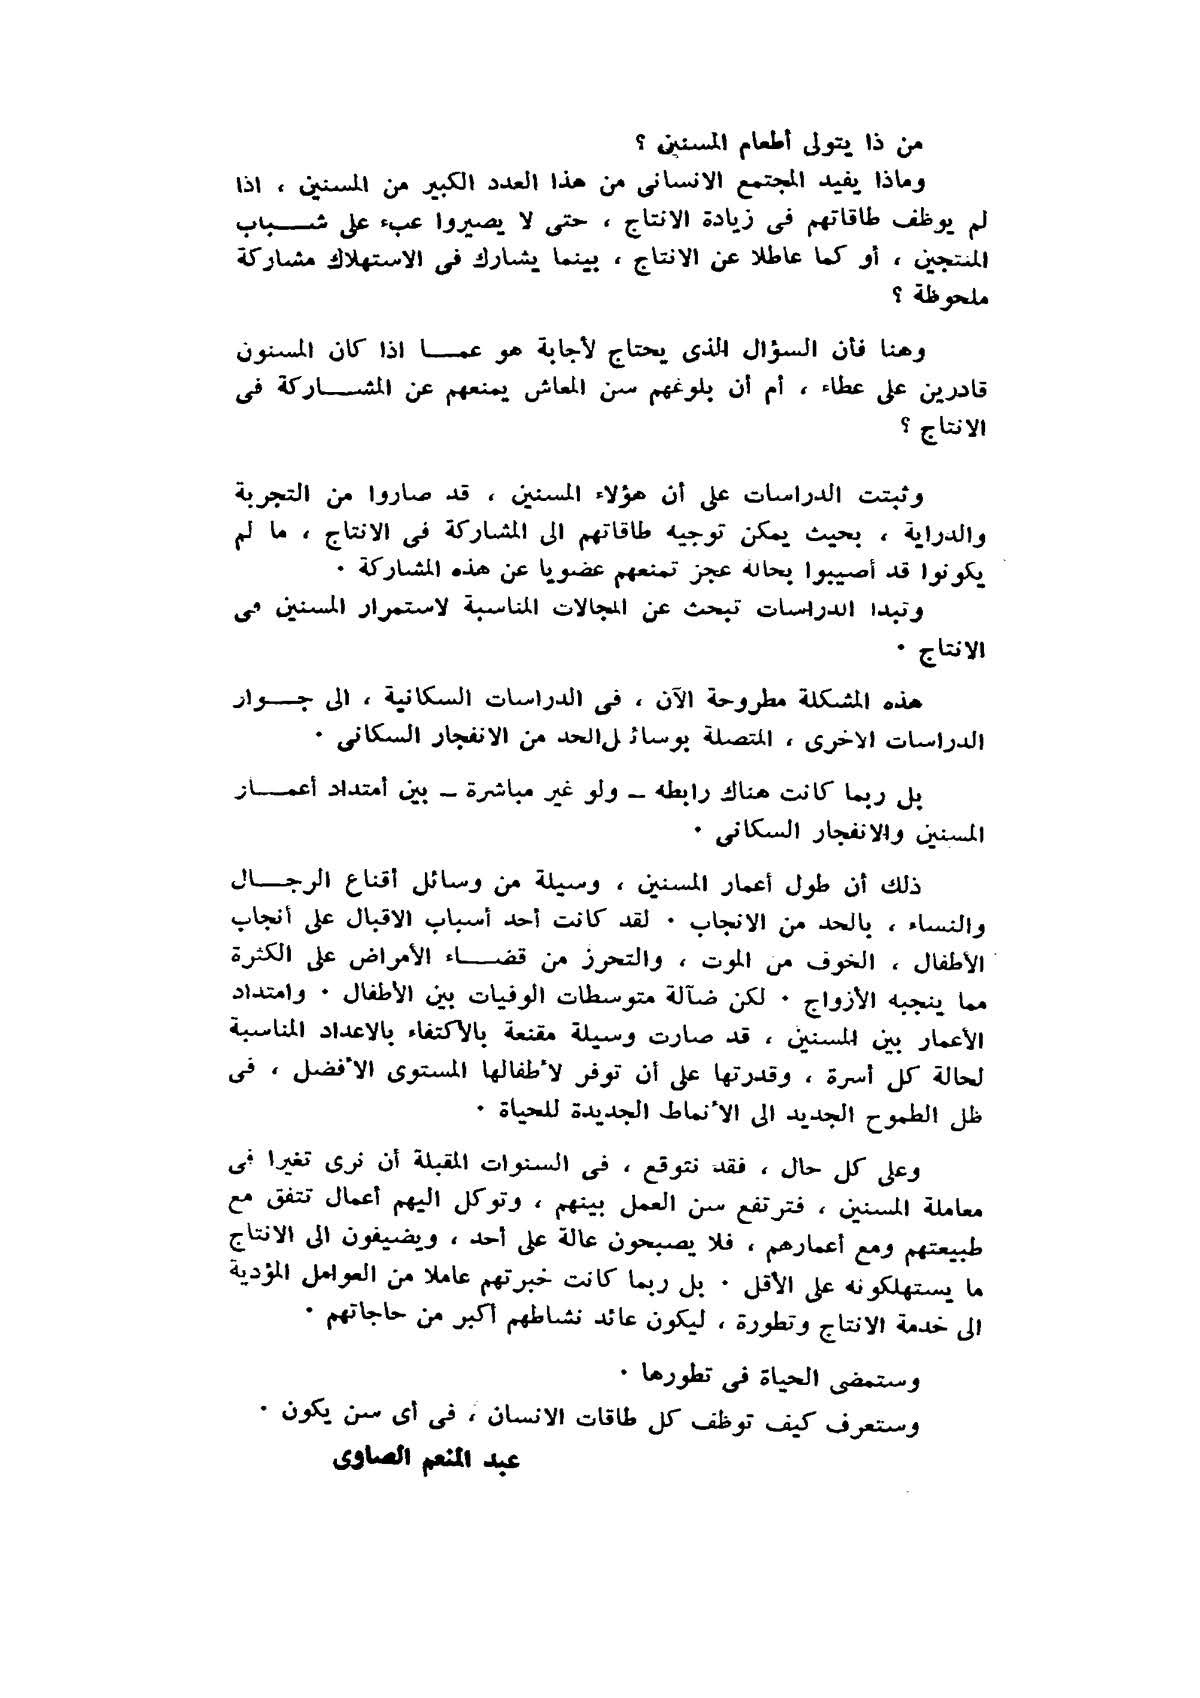 من ذا يتولى أطعام المسنين ؟
وماذا يفيد المجتمع الانسانى من هذا العدد الكبير من المسنين ، اذا
لم يوظف طاقاتهم فى زيادة الانتاج ، حتى لا يصيروا عبء على شباب
المنتجين ، أو كما عاطلا عن الانتاج ، بينما يشارك فى الاستهلاك مشاركة
ملحوظة ؟
وهنا فأن السؤال الذى يحتاج لأجابة هو عما اذا كان المسنون
قادرين على عطاء ، أم أن بلوغهم سن المعاش يمنعهم عن المشاركة فى
الانتاج ؟
وثبتت الدراسات على أن هؤلاء المسنين ، قد صاروا من التجربة
والدراية ، بحيث يمكن توجيه طاقاتهم الى المشاركة فى الانتاج ، ما لم
يكونوا قد أصيبوا بحالة عجز تمنعهم عضويا عن هذه المشاركة .
وتبدا الدراسات تبحث عن المجالات المناسبة لاستمرار المسنين فى
الانتاج .
هذه المشكلة مطروحة الآن ، فى الدراسات السكانية ، الى جوار
الدراسات الاخرى ، المتصلة بوسائل الحد من الانفجار السكانى .
بل ربما كانت هناك رابطه – ولو غير مباشرة – بين أمتداد أعمار
المسنين والانفجار السكانى .
ذلك أن طول أعمار المسنين ، وسيلة من وسائل أقناع الرجال
والنساء ، بالحد من الانجاب . لقد كانت أحد أسباب الاقبال على أنجاب
الأطفال ، الخوف من الموت ، والتحرز من قضاء الأمراض على الكثرة
مما ينجبه الأزواج . لكن ضآلة متوسطات الوفيات بين الأطفال . وامتداد
الأعمار بين المسنين ، قد صارت وسيلة مقنعة بالاكتفاء بالاعداد المناسبة
لحالة كل أسرة ، وقدرتها على أن توفر لأطفالها المستوى الأفضل ، فى
ظل الطموح الجديد الى الأنماط الجديدة للحياة .
وعلى كل حال ، فقد نتوقع ، فى السنوات المقبلة أن نرى تغيرا فى
معاملة المسنين ، فترتفع سن العمل بينهم ، وتوكل اليهم أعمال تتفق مع
طبيعتهم ومع أعمارهم ، فلا يصبحون عالة على أحد ، ويضيفون الى الانتاج
ما يستهلكونه على الأقل . بل ربما كانت خبرتهم عاملا من العوامل المؤدية
الى خدمة الانتاج وتطورة ، ليكون عائد نشاطهم أكبر من حاجاتهم .
وستمضى الحياة فى تطورها .
وستعرف كيف توظف كل طاقات الانسان ، فى أى سن يكون .
عبد المنعم الصاوى